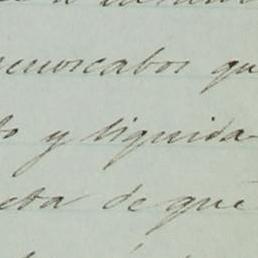 menoscabos qu
to y liquida-
eta de que